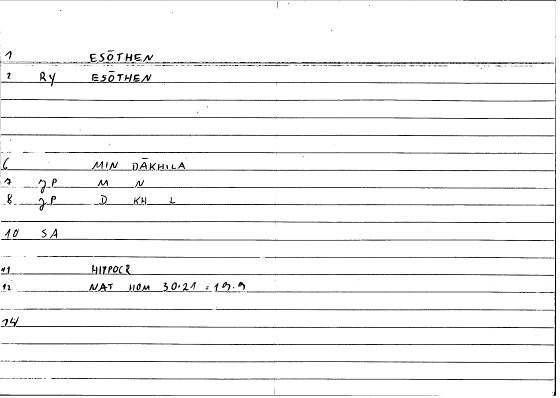 1 ESŌTHEN
2 RY ESŌTHEN
6 MIN DĀKHILA
7 JP M N
8 JP D KH L
10 SA
11 HIPPOCR
12 NAT HOM 30.21 = 19.9
14